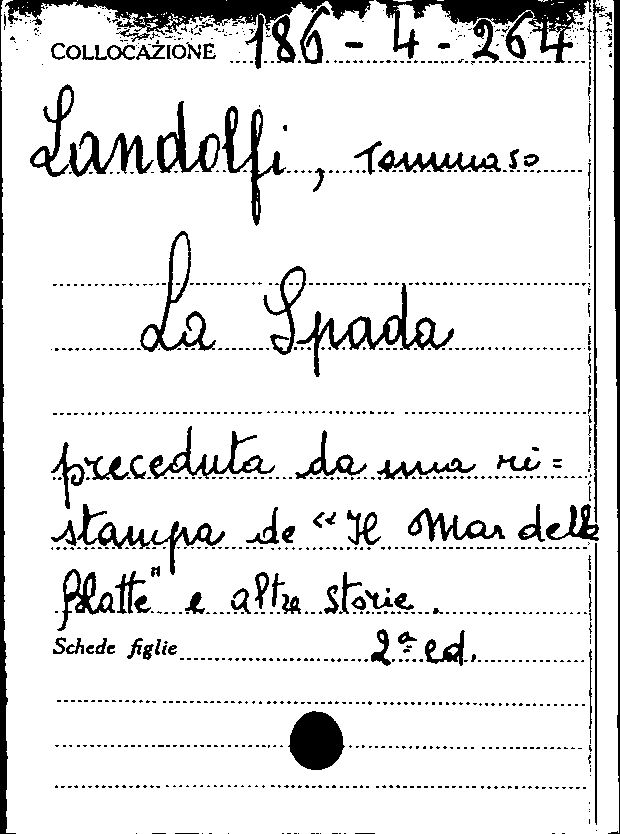 COLLOCAZIONE 186 - 4 - 264
Landolfi, Tommaso
La Spada
preceduta da una ri=
stampa de "Il Mar delle
Blatte" e altre storie.
Schede figlie 2ª ed.